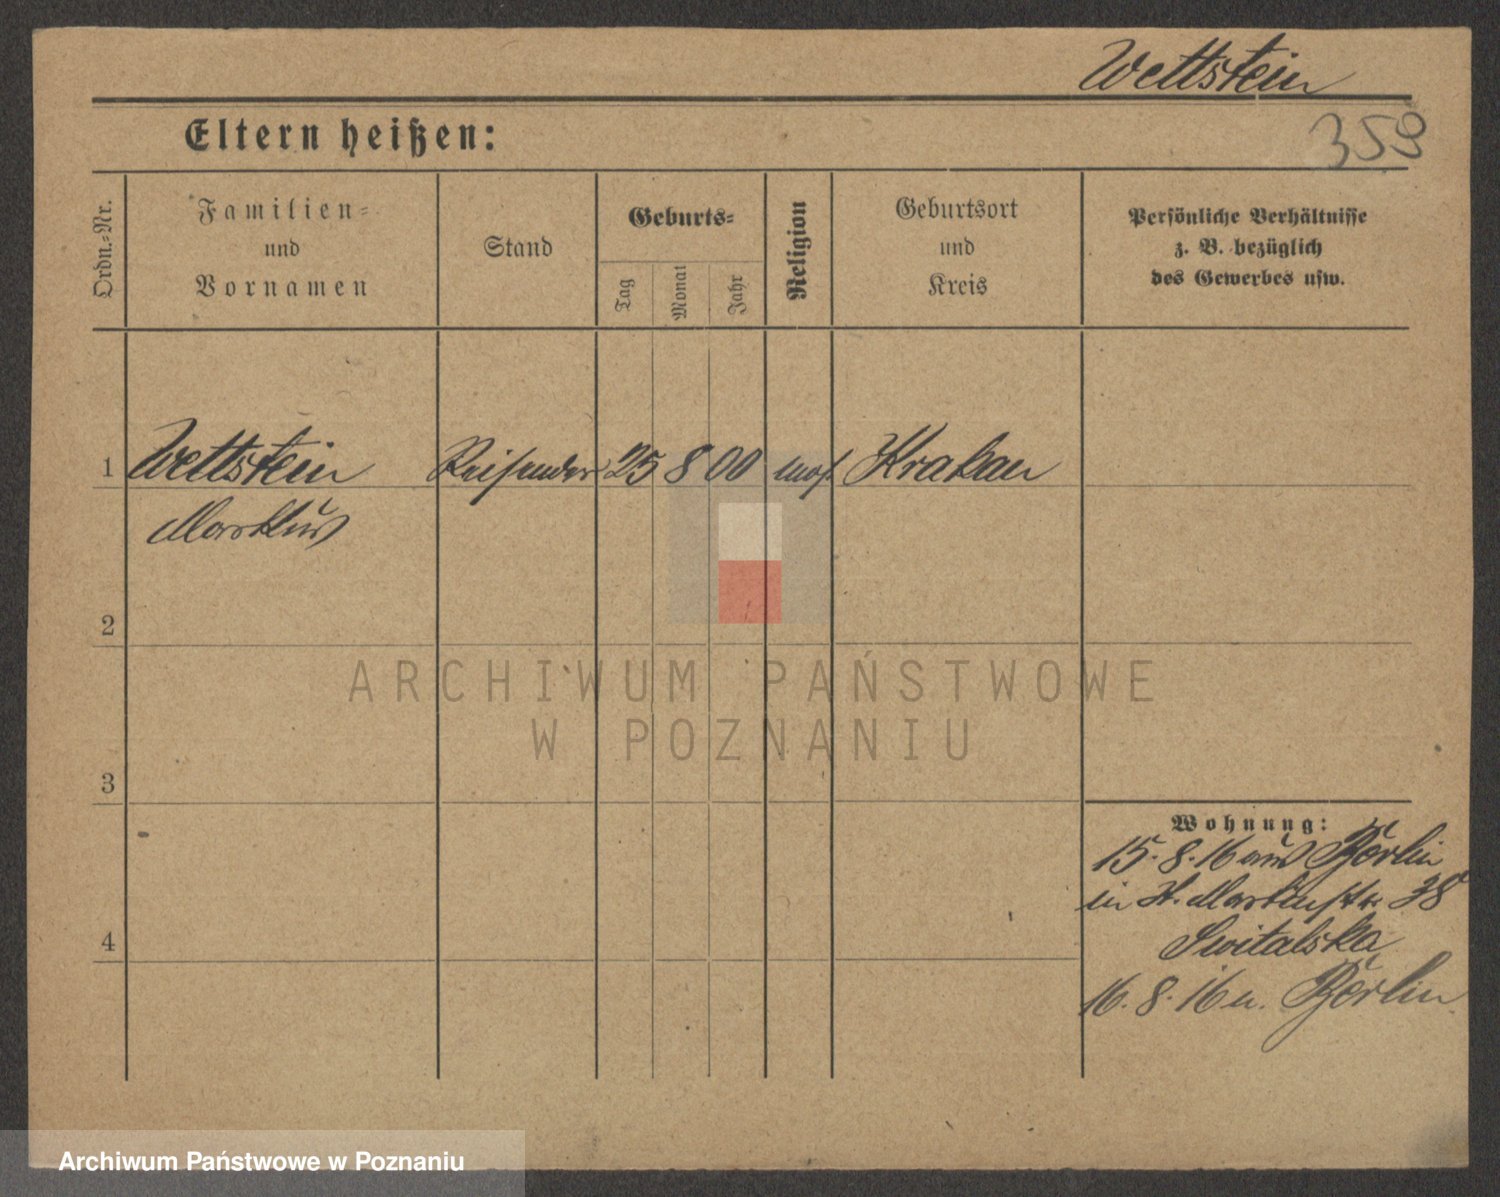 Wettstein
359
Eltern heißen:
Ordn.-Nr.
Familien-
und
Vornamen
Stand
Geburts-
Tag
Monat
Jahr
Religion
Geburtsort
und
Kreis
Persönliche Verhältnisse
z. B. bezüglich
des Gewerbes usw.
1 Wettstein Reisender 25 8 00 mos. Krakau
Markus
2
3
4
Wohnung:
15. 8. 16 aus Berlin
in St. Martinstr. 38
Switalska
16. 8. 16 n. Berlin
ARCHIWUM PAŃSTWOWE
W POZNANIU
Archiwum Państwowe w Poznaniu